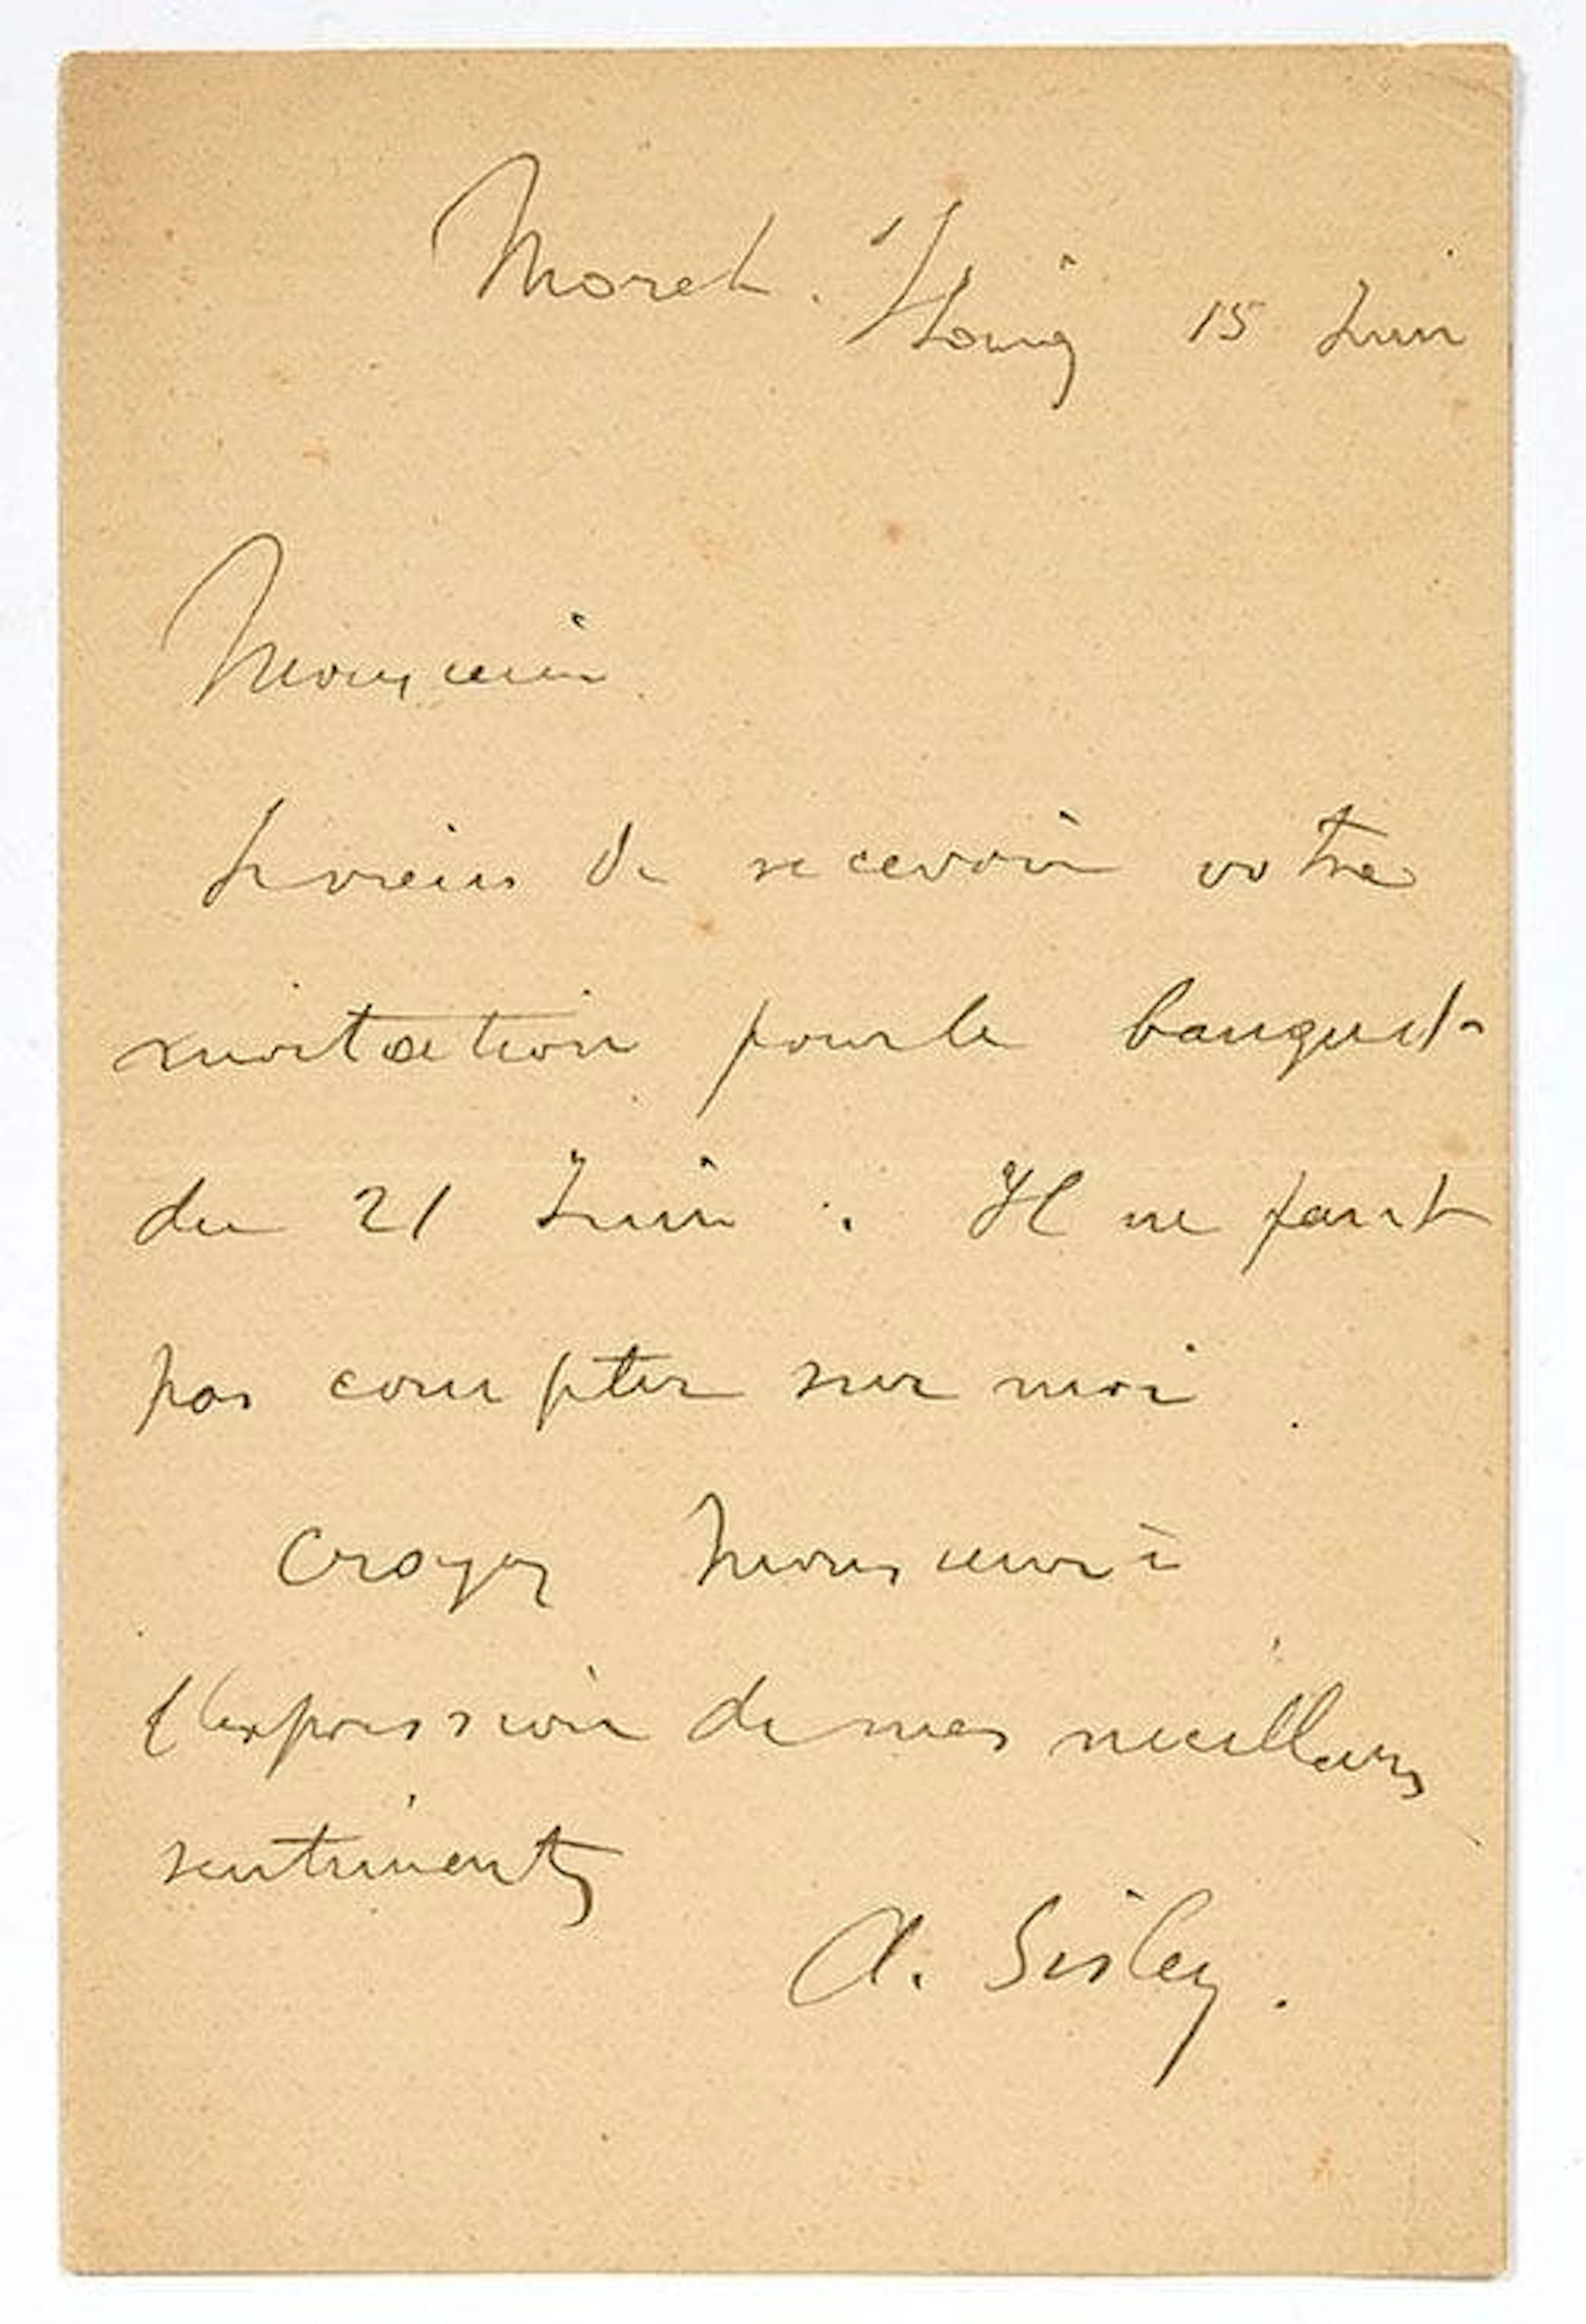 Moret. s/Loing 15 Juin
Monsieur
Je viens de recevoir votre
invitation pour le banquet
du 21 Juin. Il ne faut
pas compter sur moi.
Croyez Monsieur à
l'expression de mes meilleurs
sentiments
A. Sisley.